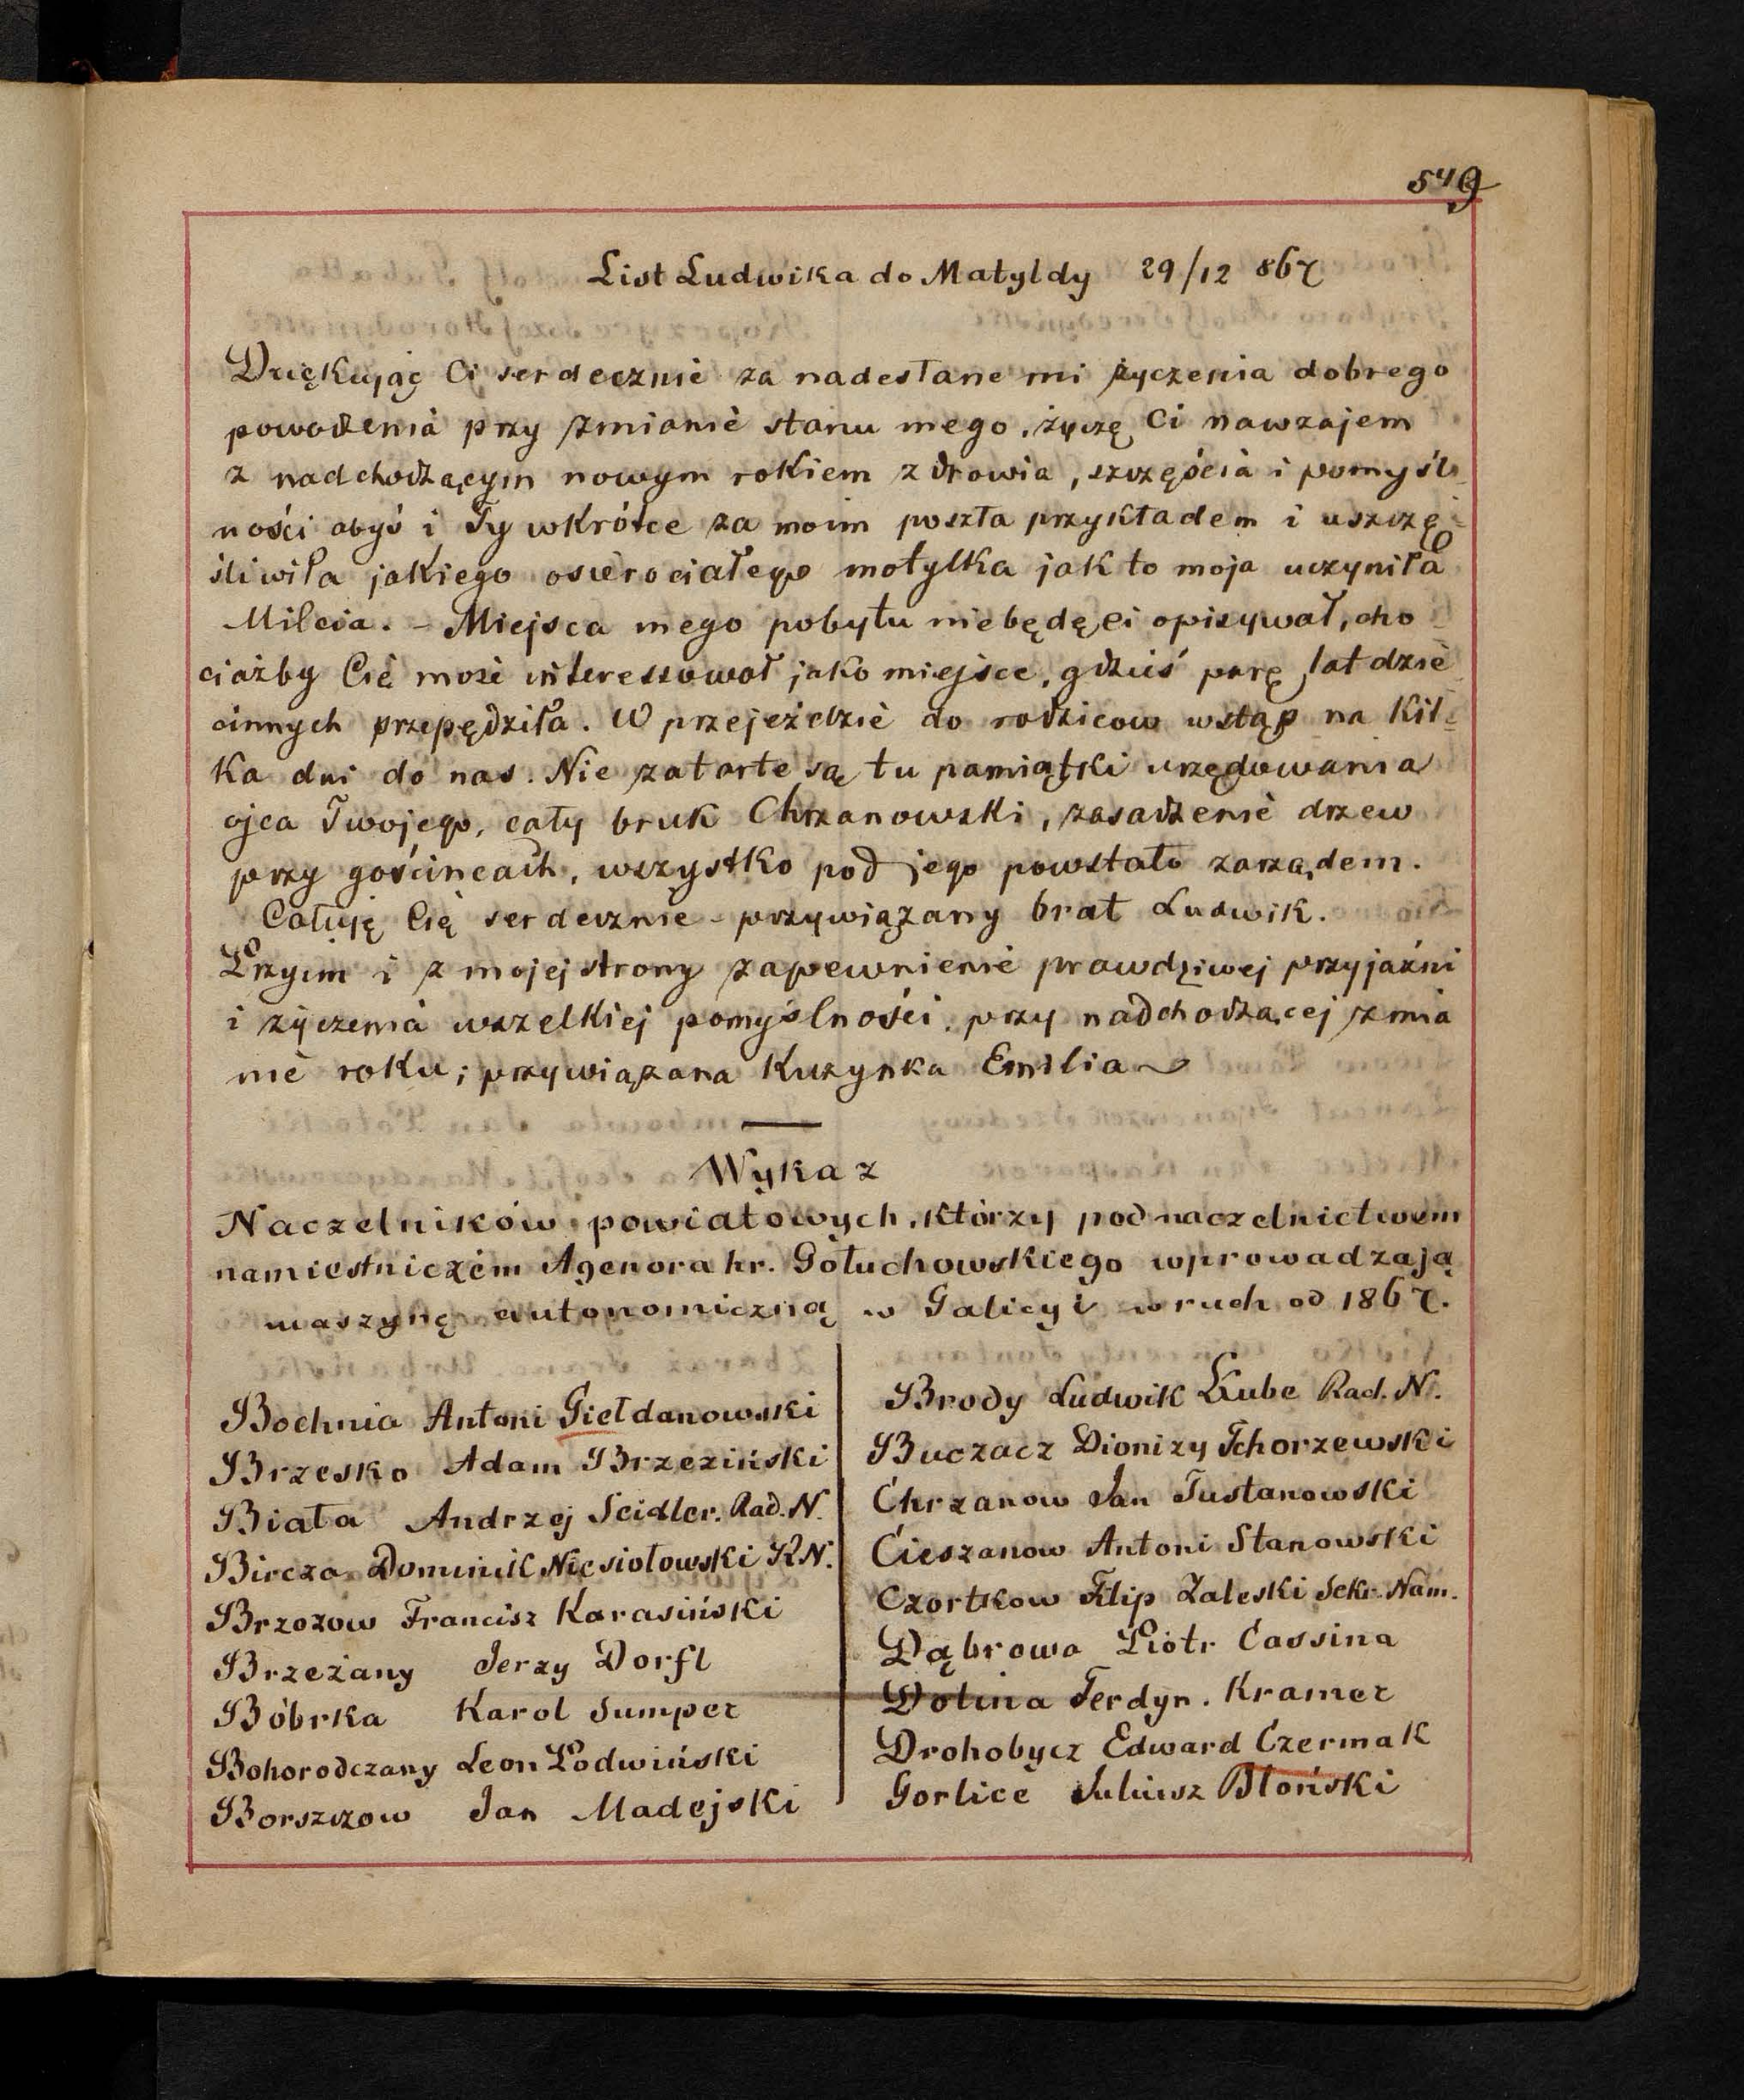 549
List Ludwika do Matyldy 29/12 867
Dziękując Ci serdecznie za nadesłane mi życzenia dobrego
powodzenia przy zmianie stanu mego, życzę Ci nawzajem
z nadchodzącym nowym rokiem zdrowia, szczęścia i pomyśl-
ności abyś i Ty wkrótce za moim poszła przykładem i uszczę-
śliwiła jakiego osierociałego motylka jak to moja uczyniła
Milcia. - Miejsca mego pobytu niebędę ci opisywał, cho
ciażby Cię może interessował jako miejsce, gdzieś parę lat dzie
cinnych przepędziła. W przejeździe do rodziców wstąp na kil-
ka dni do nas. Nie zatarte są tu pamiątki urzędowania
ojca Twojego, cały bruk Chrzanowski, zasadzenie drzew
przy gościncach, wszystko pod jego powstało zarządem.
Całuję Cię serdecznie - przywiązany brat Ludwik.
Przyim i z mojej strony zapewnienie prawdziwej przyjaźni
i życzenia wszelkiej pomyślności, przy nadchodzącej zmia
nie roku; przywiązana Kuzynka Emilia
Wykaz
Naczelników powiatowych, którzy pod naczelnictwem
namiestniczém Agenora hr. Gołuchowskiego wprowadzają
maszynę autonomiczną w Galicyi w ruch od 1867.
Bochnia Antoni Giełdanowski
Brzesko Adam Brzeziński
Biała Andrzej Seidler. Rad. N.
Bircza Dominik Niesiołowski KN.
Brzozow Francisz Karasiński
Brzeżany Jerzy Dorfl
Bóbrka Karol Sumper
Bohorodczany Leon Podwiński
Borszczow Jan Madejski
Brody Ludwik Kube Rad. N.
Buczacz Dionizy Tchorzewski
Chrzanow Jan Tustanowski
Cieszanow Antoni Stanowski
Czortkow Filip Zaleski Sekr. Nam.
Dąbrowa Piotr Cassina
Dolina Ferdyn. Kramer
Drohobycz Edward Czermak
Gorlice Juliusz Błoński